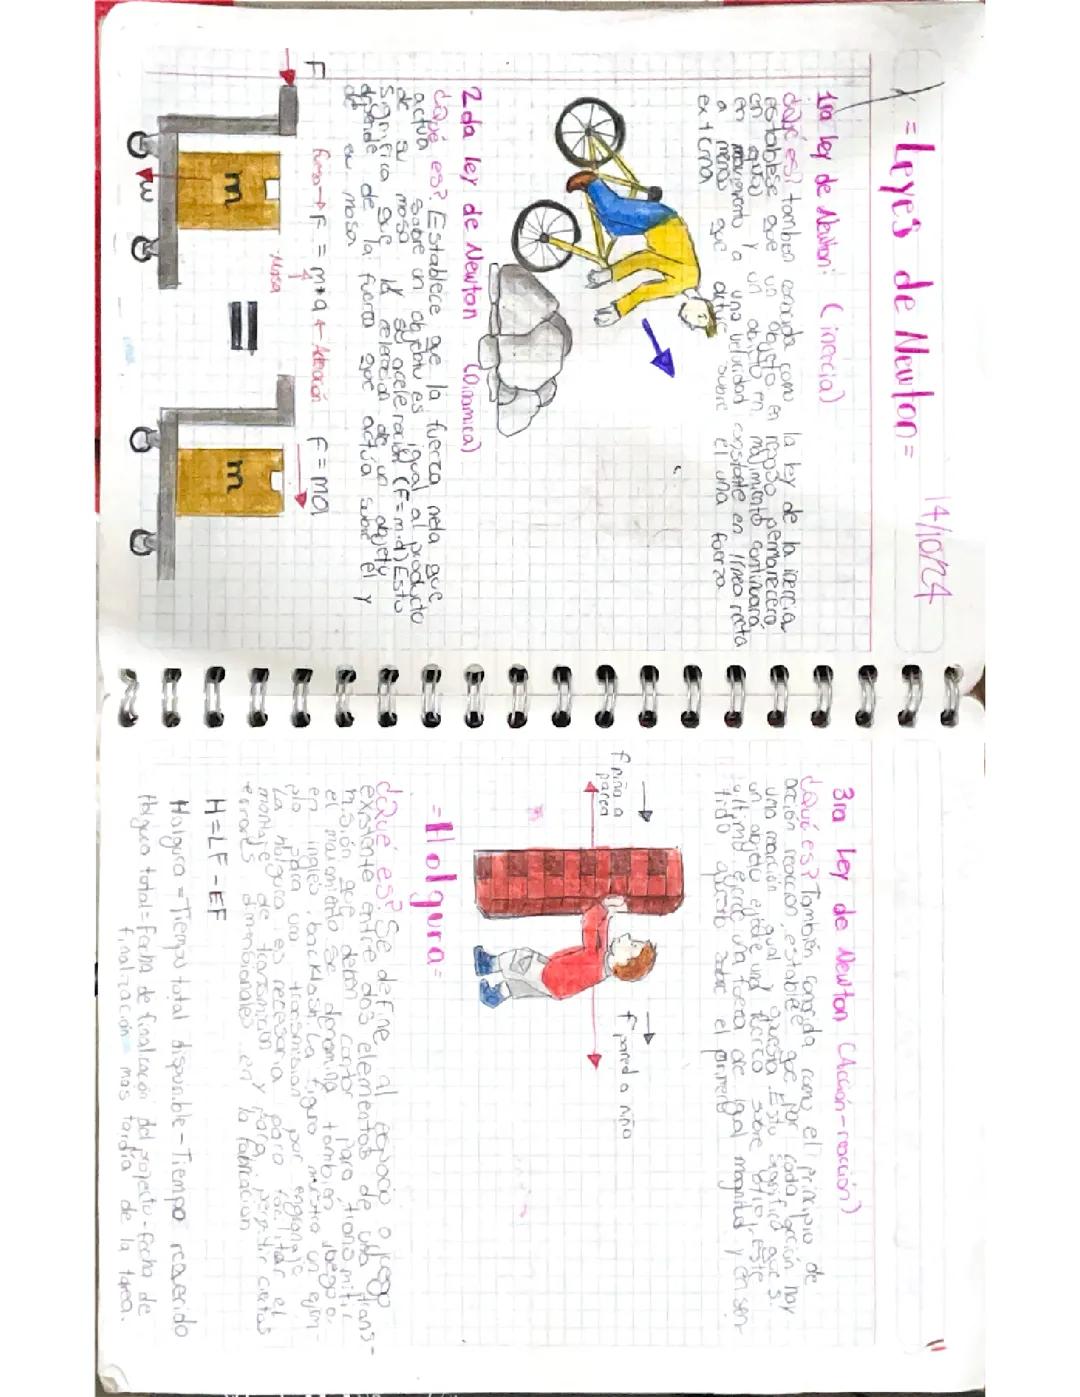 14/10/24
=Leyes de Newton=
1ra ley de Newton: (inercia)
¿Qué es? tambien conocida como la ley de la inercia,
establese que un objeto en reposo permanecera
en y un objeto en movimiento continuará
en movimiento a una velocidad constante en línea recta
a menos que actúe sobre él una fuerza
externa
2da ley de Newton (Dinamica)
¿Qué es? Establece que la fuerza neta que
actua sobre un objeto es igual al producto
de su masa y su aceleración (F=m·a) Esto
significa que la aceleración de un objeto
depende de la fuerza que actúa sobre él y
de su masa
F
fuerza→F = m*a←Aceleración F=ma
Masa
m
w
=
m
3ra Ley de Newton (Acción-reacción)
¿Qué es? También conocida como el principio de
acción reacción, establece que por cada acción hay
una reacción igual y opuesta. Esto significa que si
un objeto ejerce una fuerza sobre otro, este
último ejerce una fuerza de igual magnitud y en sen-
tido opuesto sobre el primero
F niño a pared
F pared a niño
=Holgura=
¿Qué es? Se define al espacio o juego
existente entre dos elementos de una trans-
misión que deben para transmitir
el movimiento se denomina tambien juego o
en ingles, backlash La figura muestra un ejem-
plo para una trasmision por engranaje
La holgura es necesaria para facilitar el
montaje de transmición y para permitir ciertos
errores dimensionales en la fabricacion
H=LF-EF
Holgura = Tiempo total disponible - Tiempo requerido
Holgura total = Fecha de finalización del proyecto - fecha de
finalización mas tardía de la tarea.